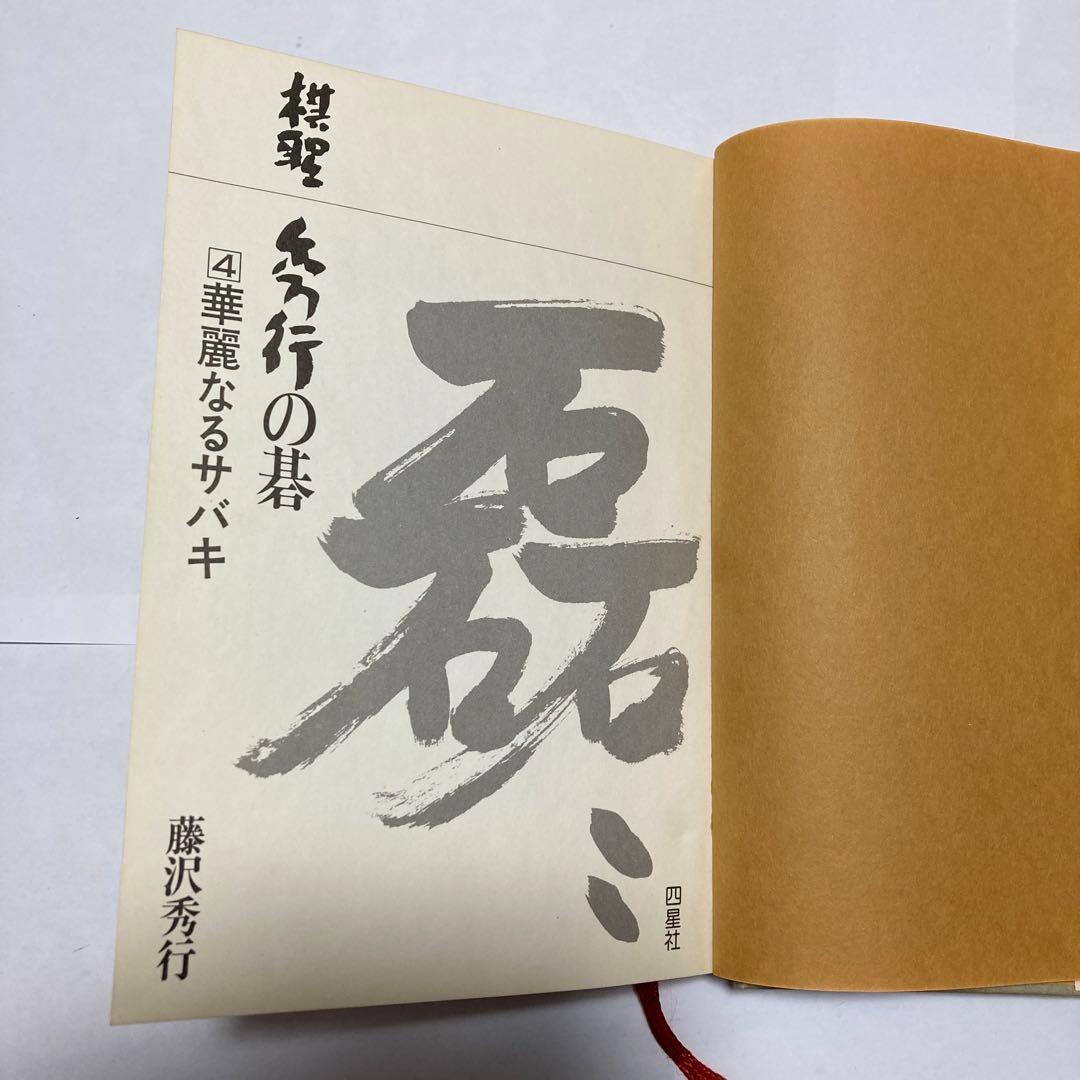 棋聖
秀行の碁
4華麗なるサバキ
磊ミ
藤沢秀行
四星社